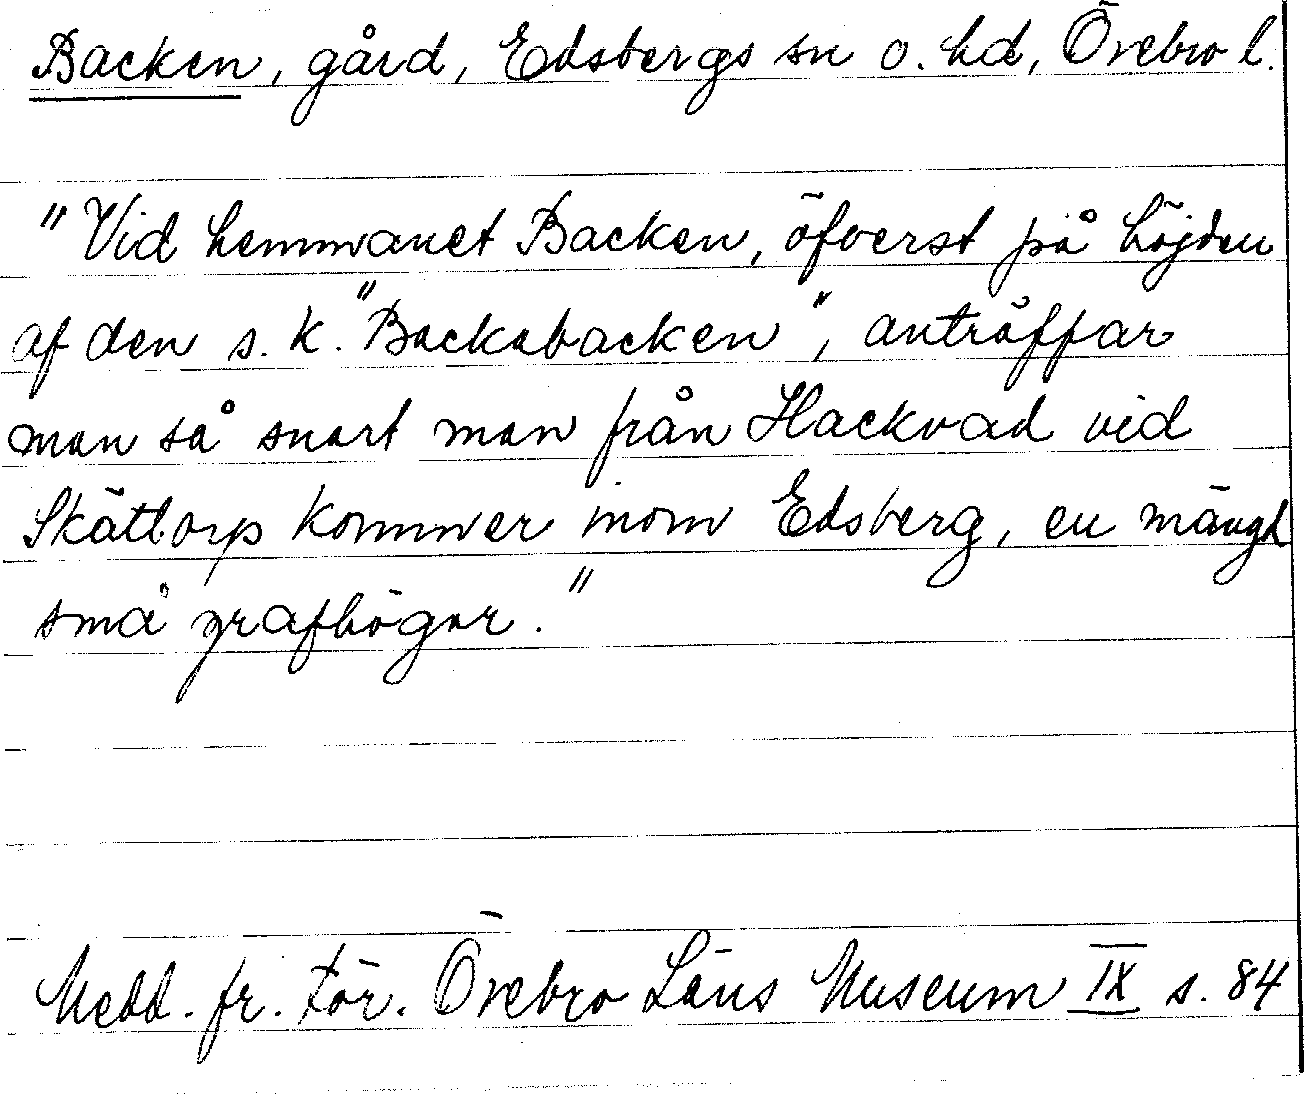 Backen, gård, Edsbergs sn o. hd, Örebro l.
"Vid hemmanet Backen, öfverst på höjden
af den s.k. "Backabacken", anträffar
man så snart man från Hackvad vid
Skättorp kommer inom Edsberg, en mängd
små grafhögar."
Medd. fr. För. Örebro Läns Museum IX s. 84